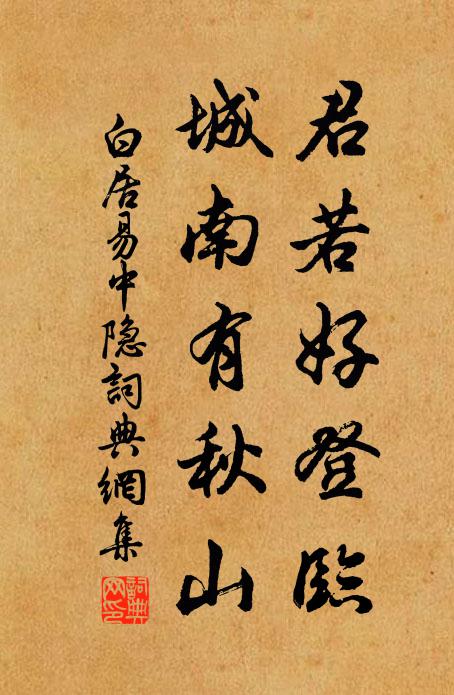 君若好登臨
城南有秋山
白居易中隐詞典網集
詞典网印